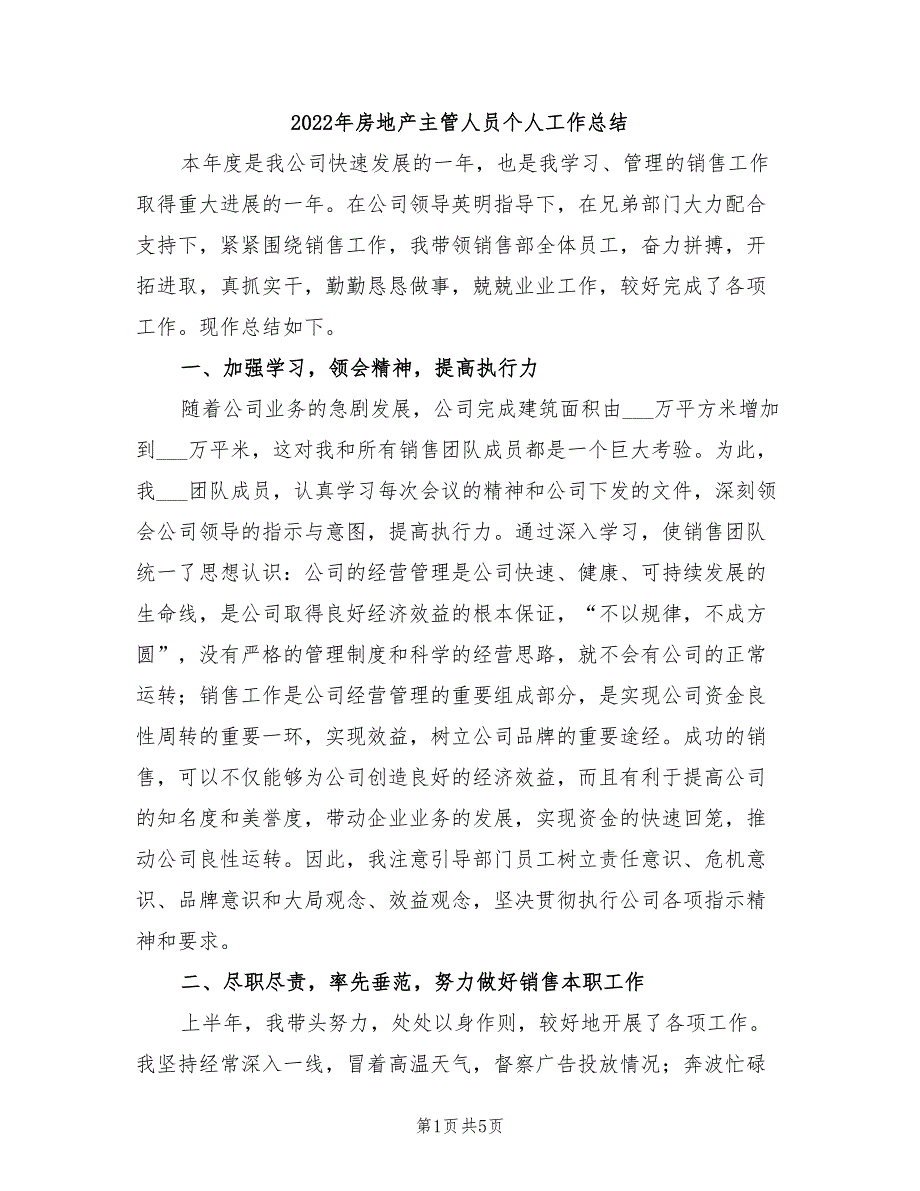 2022年房地产主管人员个人工作总结
本年度是我公司快速发展的一年，也是我学习、管理的销售工作
取得重大进展的一年。在公司领导英明指导下，在兄弟部门大力配合
支持下，紧紧围绕销售工作，我带领销售部全体员工，奋力拼搏，开
拓进取，真抓实干，勤勤恳恳做事，兢兢业业工作，较好完成了各项
工作。现作总结如下。
一、加强学习，领会精神，提高执行力
随着公司业务的急剧发展，公司完成建筑面积由___万平方米增加
到___万平米，这对我和所有销售团队成员都是一个巨大考验。为此，
我___团队成员，认真学习每次会议的精神和公司下发的文件，深刻领
会公司领导的指示与意图，提高执行力。通过深入学习，使销售团队
统一了思想认识：公司的经营管理是公司快速、健康、可持续发展的
生命线，是公司取得良好经济效益的根本保证，“不以规律，不成方
圆”，没有严格的管理制度和科学的经营思路，就不会有公司的正常
运转；销售工作是公司经营管理的重要组成部分，是实现公司资金良
性周转的重要一环，实现效益，树立公司品牌的重要途经。成功的销
售，可以不仅能够为公司创造良好的经济效益，而且有利于提高公司
的知名度和美誉度，带动企业业务的发展，实现资金的快速回笼，推
动公司良性运转。因此，我注意引导部门员工树立责任意识、危机意
识、品牌意识和大局观念、效益观念，坚决贯彻执行公司各项指示精
神和要求。
二、尽职尽责，率先垂范，努力做好销售本职工作
上半年，我带头努力，处处以身作则，较好地开展了各项工作。
我坚持经常深入一线，冒着高温天气，督察广告投放情况；奔波忙碌
第1页共5页